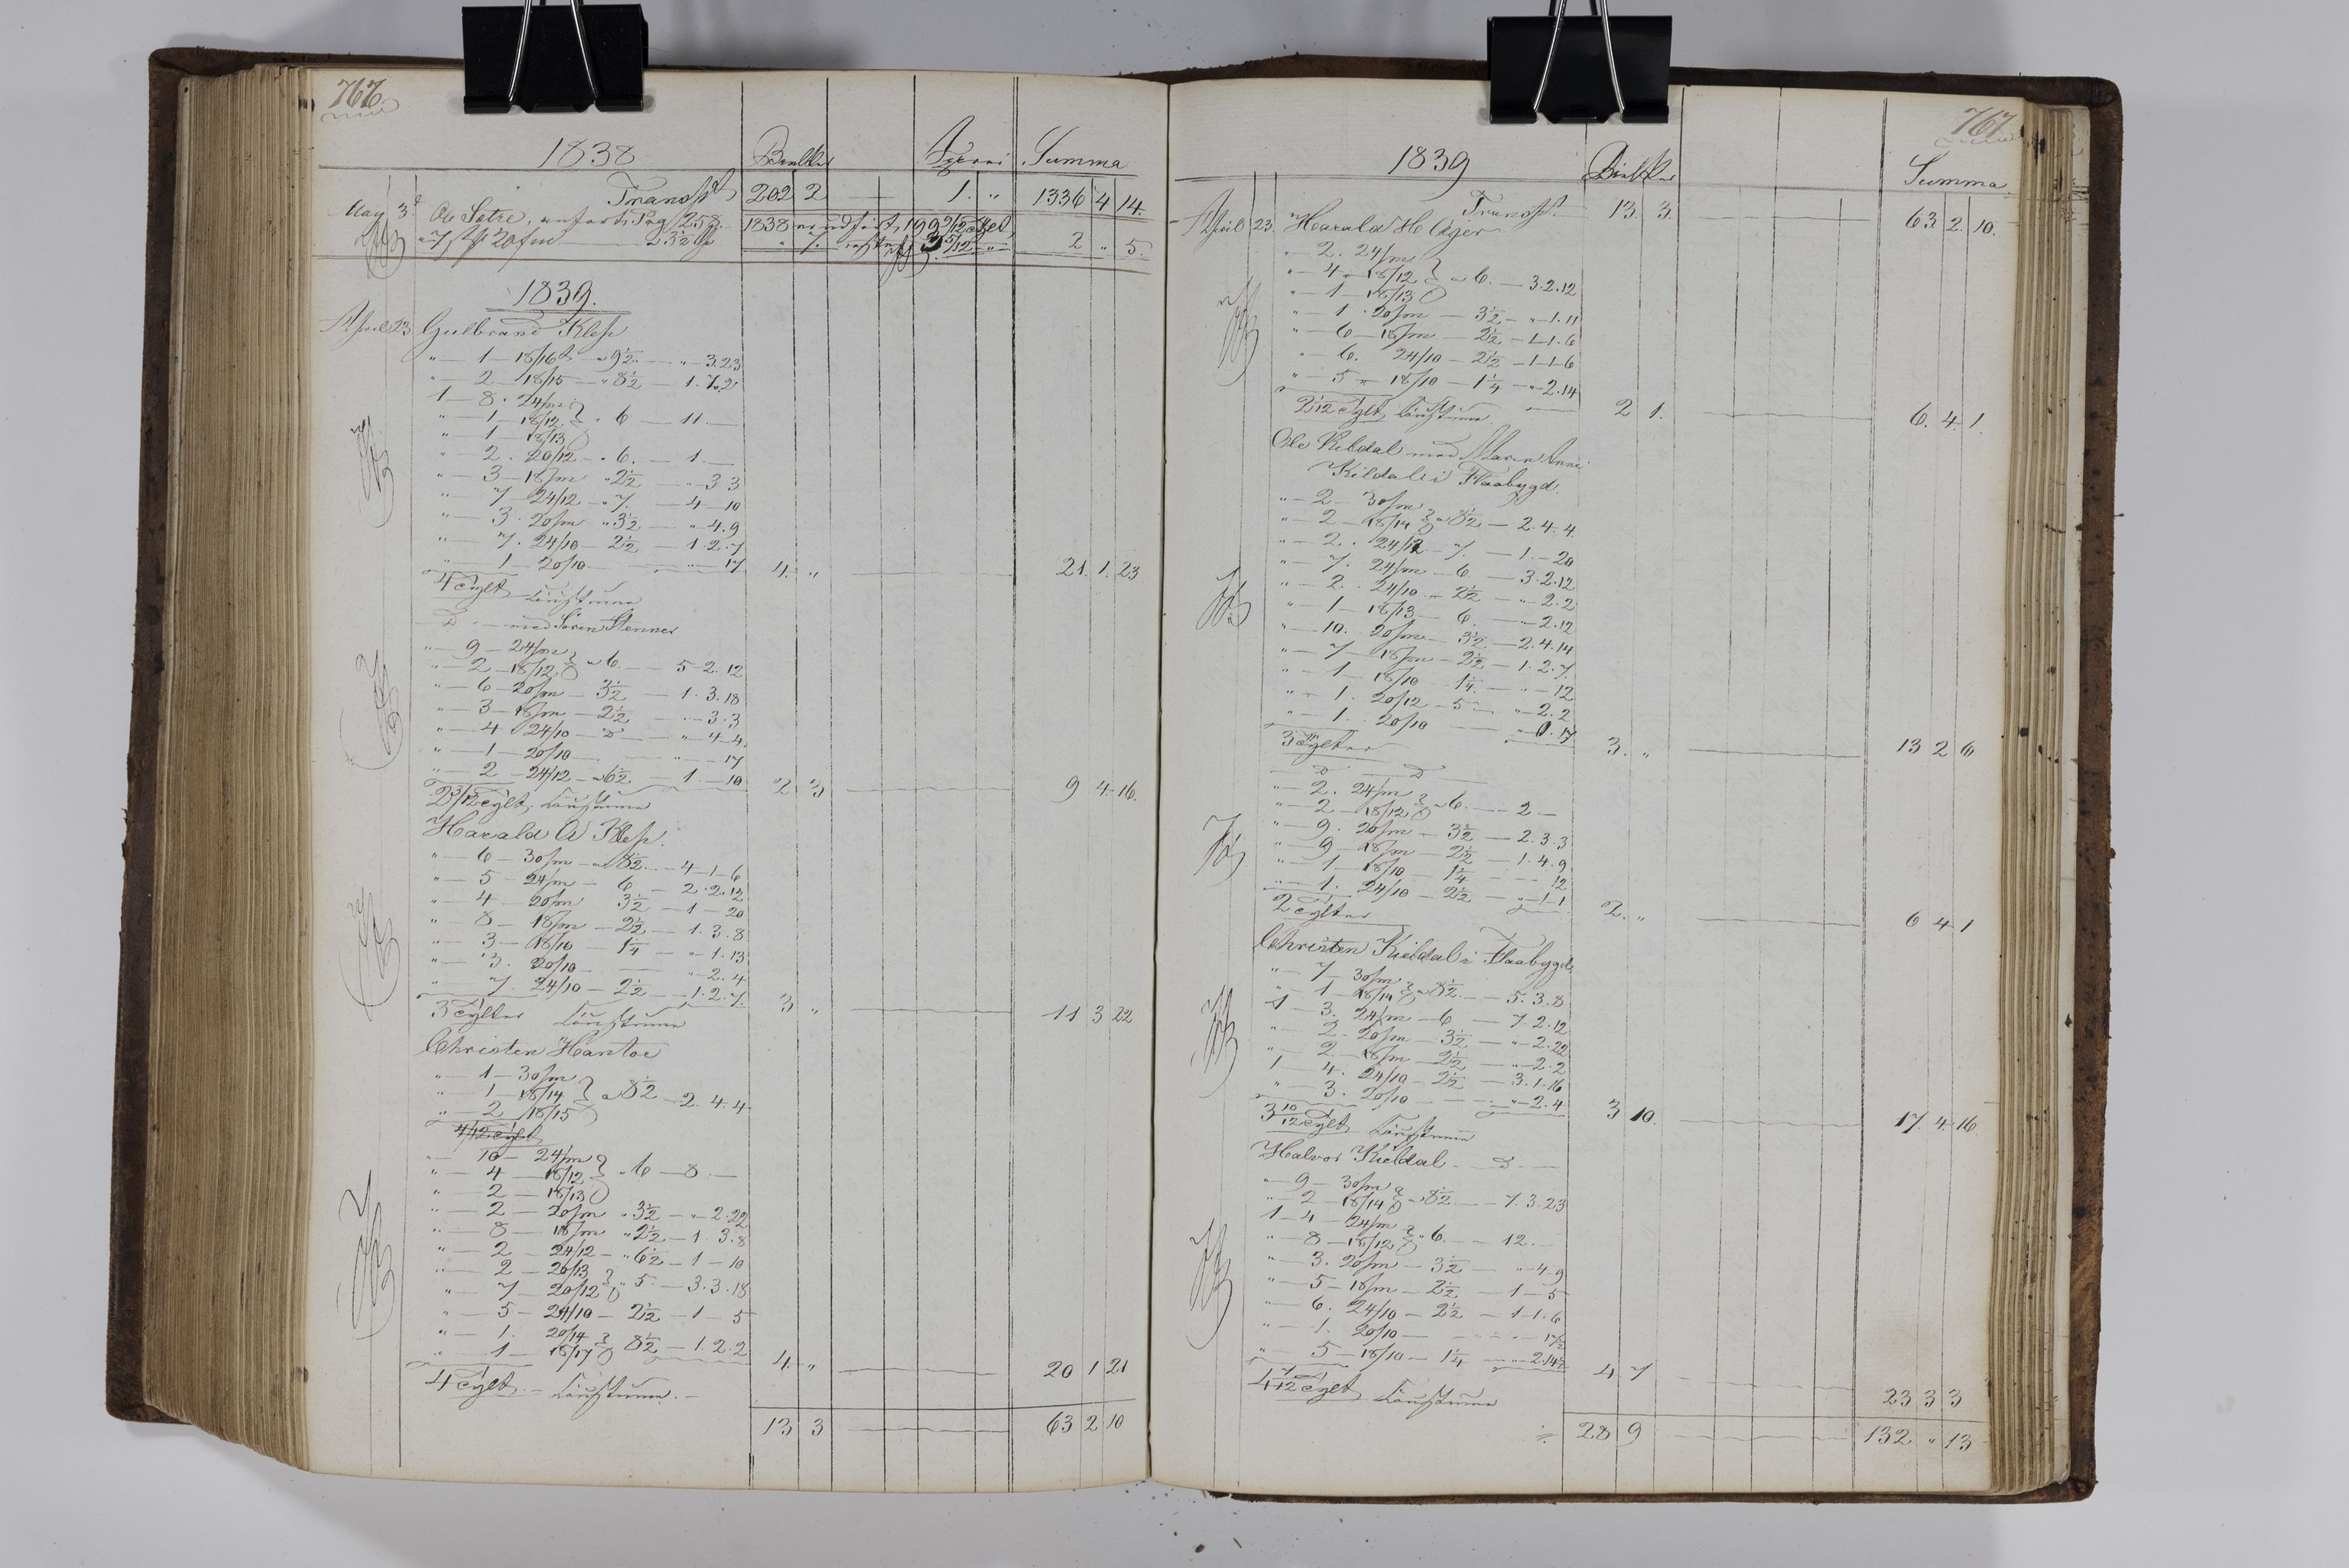 767.
1838 Bielker Summa
Transpt 202 2 — 1. " 1336 4 14.
May 3 Ole Sætre, anført Pag 258. 1838
" 7 20/m 2 3½ 2 " 5.
1839.
April 23 Gulbrand Klep
" — 1 — 18/16 — 9½ — " 3.23
" — 2 — 18/15 — " 8½ — 1.7.21
1 — 8 . 24/m
" — 1 18/12 } " 6 — 11. —
" — 1 — 18/13
" — 2 . 20/12 — " 6. — 1. —
" — 3 — 18/m " 2½ — " — 3 3
" — 7 — 24/12 — " 7. — 4 — 10
" — 3 . 20/m " 3½ — " 4.9
" — 7 . 24/10 — 2½ — 1.2.7
" — 1 — 20/10 — " — 17 4. " — 21. 1. 23
4 tylt
D — med Søren Stenner
" — 9 — 24/m
" — 2 — 18/12 } a 6 — 5 — 2.12
" — 6 — 20/m — 3½ — 1.3.18
" — 3 — 18/m — 2½ — " — 3.3
" — 4 24/10 — D — " — 4 — 4.
" — 1 — 20/10 — " — 17
" — 2 — 24/12 — a 6½ — 1. — 10 2 3 — 9 4 16.
2 3/12 tylt.
Harald A Klep.
" — 6 — 30/m — a 8½ — 4 — 1 — 6
" — 5 — 24/m — 6 — 2.2.12
" — 4 — 20/m 3½ — 1 — 20
" — 8 — 18/m — 2½ — 1.3.8
" — 3 — 18/10 — 1¼ — " — 1.13
" — 3. 20/10 — " — 2.4
" — 7. 24/10 — 2½ — 1.2.7. 3 " — 11 3 22
3 tylter
Christen Hantoe
" — 1 — 30/m
" — 1 — 18/14 } a 8½ — 2.4.4
" — 2 18/15
4/12 tylt
" — 10 — 24/m
" — 4 — 18/12 } " 6 — 8. —
" — 2 — 18/13
" — 2 — 20/m " 3½ — " — 2.22
" — 8 — 18/m " 2½ — 1.3.8
" — 2 — 24/12 — " 6½ — 1 — 10
" — 2 — 20/13
" — 7 20/12 } " 5. — 3.3.18
" — 5 — 24/10 — 2½ — 1 — 5
" — 1. 20/14
" — 1 — 18/17 } 8½ — 1.2.2 4. " — 20 1 21
4 tylt —
13 3 — 63 2 10
767
1839 Bielker Summa
Transpt. 13. 3. — 63. 2. 10.
April 23. Harald H Ager
" — 2. 24/m
" — 4 — 18/12 } a 6. — 3.2.12
" — 1 — 18/13
" — 1 . 20/m — 3½ — " — 1.11
" — 6 — 18/m — 2½ — 1 — 1.6
" — 6. 24/10 — 2½ — 1 — 1 — 6
" — 5 " — 18/10 — 1¼ — " — 2.14
2 1/12 tylt 2 1. — 6. 4. 1.
Ole Kildal med Maren Anne
Kildal i Flaabygd.
" — 2 — 30/m
" — 2 — 18/14 } a 8½ — 2.4.4.
" — 2 . 24/12 — 7. — 1. — 20
" — 7. 24/m — 6 — 3.2.12
" — 2. 24/10 — 2½ — " — 2.2
" — 1 — 18/13 — 6. — " — 2.12
" — 10. 20/m — 3½ — 2.4.14
" — 7 — 18/m — 2½ — 1.2.7.
" — 1 — 18/10 — 1¼ — " — 12
" — 1. 20/12 — 5 — " — 2.2
" — 1. 20/10 — " — 0.17
3 tylter 3. " — 13 2 6
D — D
" — 2. 24/m
" — 2 — 18/12 } a 6. — 2 —
" — 9. 20/m — 3½ — 2.3.3
" — 9 — 18/m — 2½ — 1.4.9
" — 1 — 18/10 — 1¼ — " — 12
" — 1. 24/10 — 2½ — " — 1 — 1
2 tylter 2. " — 6 4 1
Christen Kieldal i Flaabygd
" — 7 — 30/m
" — 1 — 18/14 } a 8½ — 5.3.8
1 — 3. 24/m — 6 — 7.2.12
" — 2. 20/m — 3½ — " — 2.22
" — 2 — 18/m — 2½ — " — 2.2
1 — 4. 24/10 — 2½ — 3.1.16
" — 3. 20/10 — " — 2.4
3 10/12 tylt 3 10. — 17. 4. 16
Halvor Kieldal — D —
" — 9 — 30/m
" — 2 — 18/14 } a 8½ — 7.3.23
1 — 4 — 24/m
" — 8 — 18/12 } " 6. — 12. —
" — 3. 20/m — 3½ — " — 4 — 9
" — 5 — 18/m — 2½ — 1 — 5
" — 6. 24/10 — 2½ — 1 — 1.6
" — 1. 20/10 — " — 17½
" — 5 — 18/10 — 1¼ — " — 2.14½ 4 7
4 7/12 tylt 23 3 3
28 9 — 132 " 13